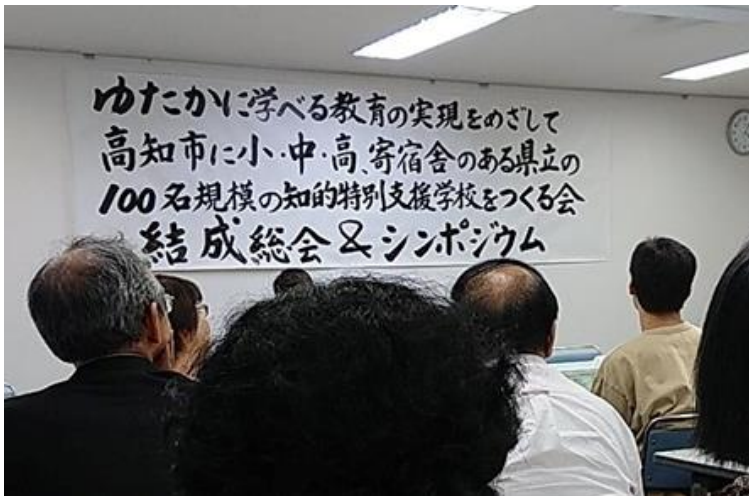 ゆたかに学べる教育の実現をめざして
高知市に小・中・高、寄宿舎のある県立の
100名規模の知的特別支援学校をつくる会
結成総会＆シンポジウム